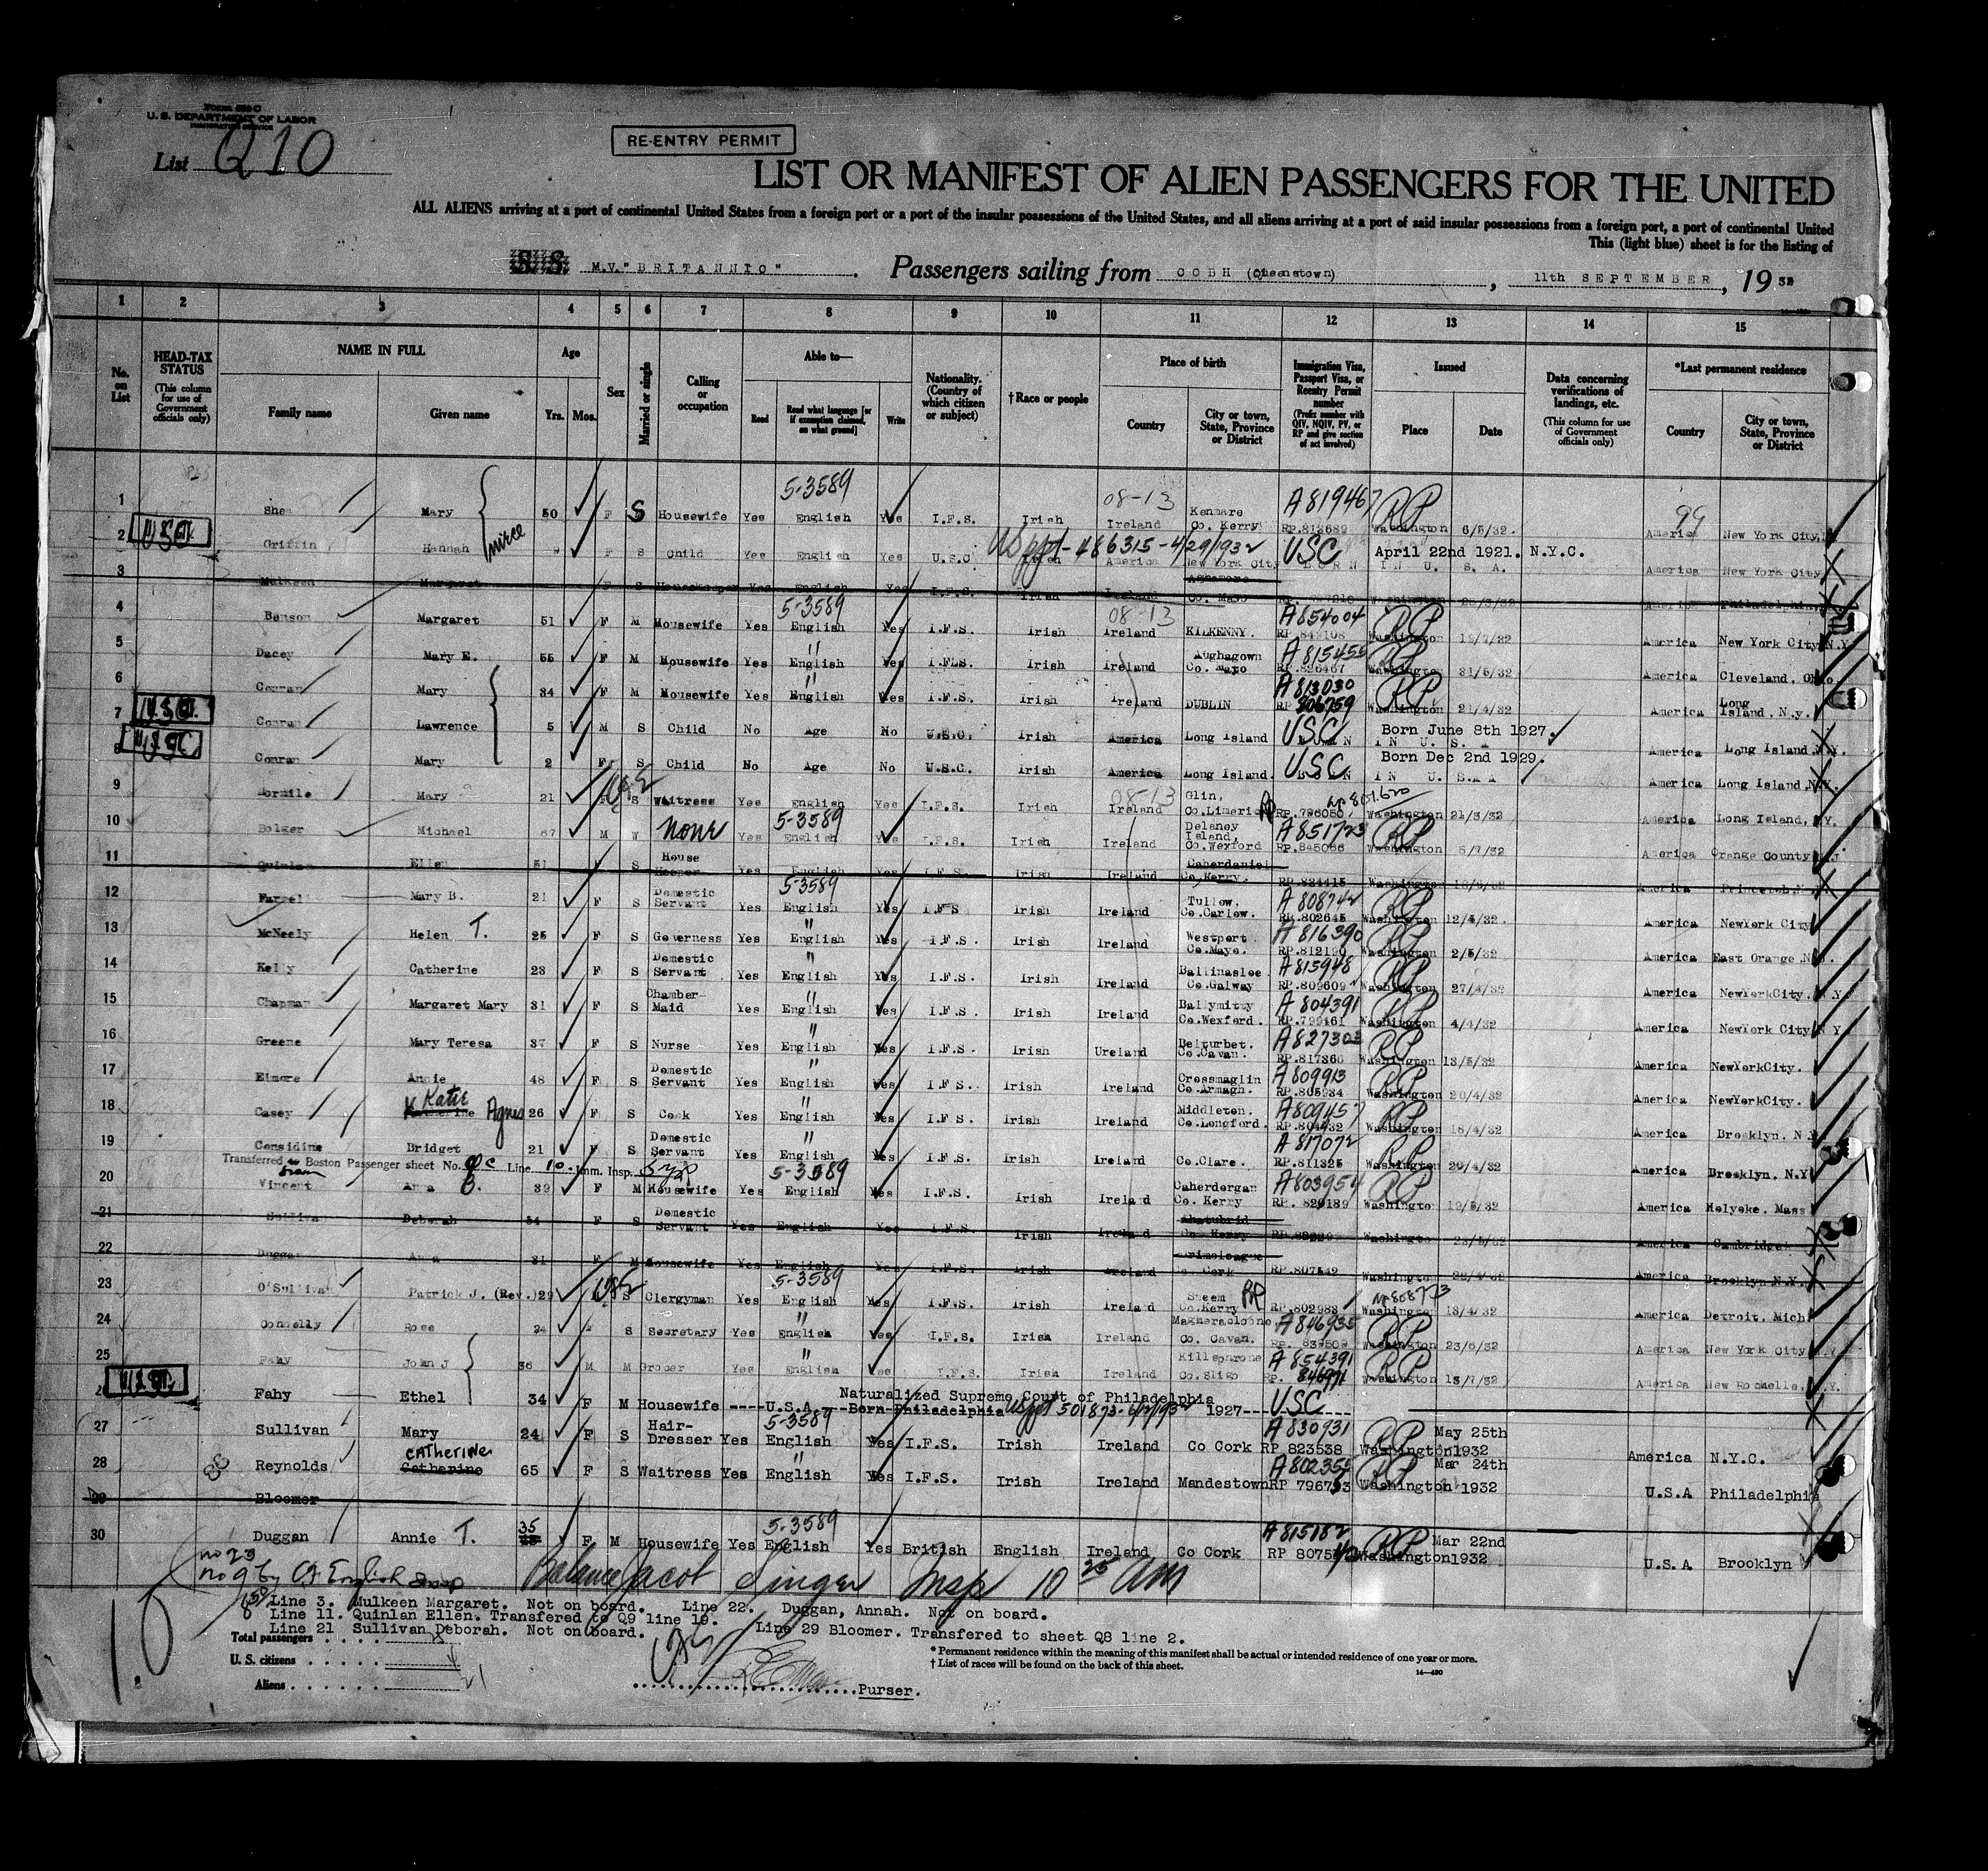 Form 500 C
U. S. DEPARTMENT OF LABOR
IMMIGRATION SERVICE
List Q10
RE-ENTRY PERMIT
LIST OR MANIFEST OF ALIEN PASSENGERS FOR THE UNITED
ALL ALIENS arriving at a port of continental United States from a foreign port or a port of the insular possessions of the United States, and all aliens arriving at a port of said insular possessions from a foreign port, a port of continental United
This (light blue) sheet is for the listing of
S. S. M.V. "BRITANNIC". Passengers sailing from COBH (Queenstown), 11th SEPTEMBER, 1932
1 2 3 4 5 6 7 8 9 10 11 12 13 14 15
No. on List
HEAD-TAX STATUS (This column for use of Government officials only)
NAME IN FULL Family name Given name
Age Yrs. Mos.
Sex
Married or single
Calling or occupation
Able to— Read Read what language [or if exemption claimed, on what ground] Write
Nationality. (Country of which citizen or subject)
†Race or people
Place of birth Country City or town, State, Province or District
Immigration Visa, Passport Visa, or Reentry Permit number (Prefix number with QIV, NQIV, PV, or RP and give section of act involved)
Issued Place Date
Data concerning verifications of landings, etc. (This column for use of Government officials only)
*Last permanent residence Country City or town, State, Province or District
5-3589 08-13 A819467 RP 99
1 Shea Mary 50 F S Housewife Yes English Yes I.F.S. Irish Ireland Kenmare Co. Kerry RP.813689 Washington 6/5/32. America New York City.
niece
2 USC Griffin Hannah 9 F S Child Yes English Yes U.S.C. Irish America New York City US ppt-486315-4/29/1932 USC BORN IN U. S. A. April 22nd 1921. N.Y.C. America New York City
3 Mulkeen Margaret F S Housekeeper Yes English Yes I.F.S. Irish Ireland Aghamore Co. Mayo Washington America Philadelphia
5-3589 08-13 A854004 RP
4 Benson Margaret 51 F M Housewife Yes English Yes I.F.S. Irish Ireland KILKENNY. Washington 19/7/32 America New York City N.Y.
5 Dacey Mary E. 55 F M Housewife Yes " English Yes I.F.S. Irish Ireland Aughagown Co. Mayo A815455 RP.826467 RP Washington 31/5/32 America Cleveland, Ohio
6 Conran Mary 34 F M Housewife Yes " English Yes I.F.S. Irish Ireland DUBLIN A813030 RP 806759 RP Washington 21/4/32 America Long Island, N.y.
7 USC Conran Lawrence 5 M S Child No Age No U.S.C. Irish America Long Island USC BORN IN U. S. A Born June 8th 1927. America Long Island, N.Y.
8 USC Conran Mary 2 F S Child No Age No U.S.C. Irish America Long Island. USC BORN IN U. S.A Born Dec 2nd 1929. America Long Island, N.Y.
9 Mary 21 F S Waitress Yes English Yes I.F.S. Irish 08-13 Ireland Glin, Co.Limerick RP RP.796050 Washington 21/3/32 America Long Island, N.Y.
10 Bolger Michael 67 M W None Yes 5-3589 English Yes I.F.S. Irish Ireland Delaney Island, Co.Wexford A851723 RP.845086 RP Washington 5/7/32 America Orange County N.J
11 Quinlan Ellen 51 F S House Keeper Yes English Yes I.F.S. Irish Ireland Caherdaniel Co.Kerry. RP.824415 Washington America Princeton, N.
12 Farrell Mary B. 21 F S Domestic Servant Yes 5-3589 English Yes I.F.S Irish Ireland Tullow. Co.Carlow. A808742 RP.802645 RP Washington 12/4/32. America NewYork City
13 McNeely Helen T. 25 F S Governess Yes " English Yes I.F.S. Irish Ireland Westport. Co.Mayo. A816390 RP.812190 RP Washington 2/5/32 America East Orange N.J.
14 Kelly Catherine 23 F S Domestic Servant Yes " English Yes I.F.S. Irish Ireland Ballinasloe Co.Galway A815948 RP.809609 RP Washington 27/4/32 America NewYorkCity. N.Y
15 Chapman Margaret Mary 31 F S Chamber-Maid Yes " English Yes I.F.S. Irish Ireland Ballymitty Co.Wexford. A804391 RP.799461 RP Washington 4/4/32 America NewYork City N Y
16 Greene Mary Teresa 37 F S Nurse Yes " English Yes I.F.S. Irish Ureland Belturbet. Co.Cavan. A827303 RP.817360 RP Washington 13/5/32 America NewYorkCity.
17 Elmore Annie 48 F S Domestic Servant Yes " English Yes I.F S. Irish Ireland Crossmaglin Co.Armagh. A809913 RP.805934 RP Washington 20/4/32 America NewYorkCity.
18 Casey Katherine Katie Agnes 26 F S Cook Yes " English Yes I.F S. Irish Ireland Middleton. Co.Longford. A809457 RP.804432 RP Washington 18/4/32 America Brooklyn. N.Y
19 Considine Bridget 21 F S Domestic Servant Yes " English Yes I.F.S. Irish Ireland Co.Clare. A817072 RP.811325 RP Washington 29/4/32 America Brooklyn. N.Y
Transferred to from Boston Passenger sheet No. Line 10. Imm. Insp.
20 Vincent Anna B. 39 F M Housewife Yes 5-3589 English Yes I.F.S. Irish Ireland Caherdorgan Co. Kerry A803954 RP. 820189 RP Washington 19/5/32 America Holyoke. Mass
21 Sullivan Deborah 54 F S Domestic Servant Yes English Yes I.F.S. Irish Ireland Co Kerry Washington 23/5/32 America Cambridge
22 Duggan Anna 31 F M Housewife Yes English Yes I.F.S. Irish Ireland Timoleague Co. Cork RP.807542 Washington America Brooklyn N.Y.
23 O'Sullivan Patrick J. (Rev.) 29 S Clergyman Yes 5-3589 English Yes I.F.S. Irish Ireland Sneem Co.Kerry RP RP.802983 Washington 13/4/32 America Detroit, Mich
24 Connelly Rose 24 F S Secretary Yes " English Yes I.F.S. Irish Ireland Magheracloone Co. Cavan. A846935 RP Washington 23/6/32 America New York City N.Y.
25 Fahy John J 36 M M Grocer Yes " English Yes I.F.S Irish Ireland Co.Sligo A854391 RP. 846971 RP Washington 13/7/32 America New Rochelle, N.Y.
26 USC Fahy Ethel 34 F M Housewife ----U.S.A.--Born Philadelphia Naturalized Supreme Court of Philadelphia 1927--- USC
27 Sullivan Mary 24 F S Hair-Dresser Yes 5-3589 English Yes I.F.S. Irish Ireland Co Cork A830931 RP 823538 RP Washington May 25th 1932 America N.Y.C.
28 Reynolds Catherine CATHERINE 65 F S Waitress Yes " English Yes I.F.S. Irish Ireland Mandestown A802355 RP 796733 RP Washington Mar 24th 1932 U.S.A Philadelphia
29 Bloomer
30 Duggan Annie T. 35 F M Housewife Yes 5-3589 English Yes British English Ireland Co Cork A815182 RP 80754 RP Washington Mar 22nd 1932 U.S.A Brooklyn
no 23
no 9 by English Insp Balance Jacob Singer Insp 10 25 AM
Line 3. Mulkeen Margaret. Not on board. Line 22. Duggan, Annah. Not on board.
Line 11. Quinlan Ellen. Transfered to Q9 line 19.
Line 21 Sullivan Deborah. Not on board. Line 29 Bloomer. Transfered to sheet Q8 line 2.
Total passengers
U. S. citizens
Aliens
Purser.
* Permanent residence within the meaning of this manifest shall be actual or intended residence of one year or more.
† List of races will be found on the back of this sheet.
14—430